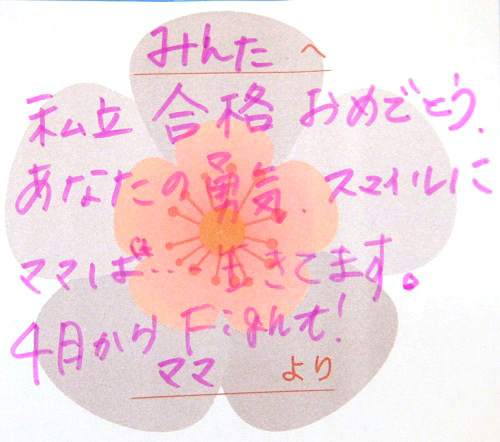 みんたへ
私立合格おめでとう.
あなたの勇気.スマイルに
ママは゛… 生きてます。
4月から Fight!
ママより